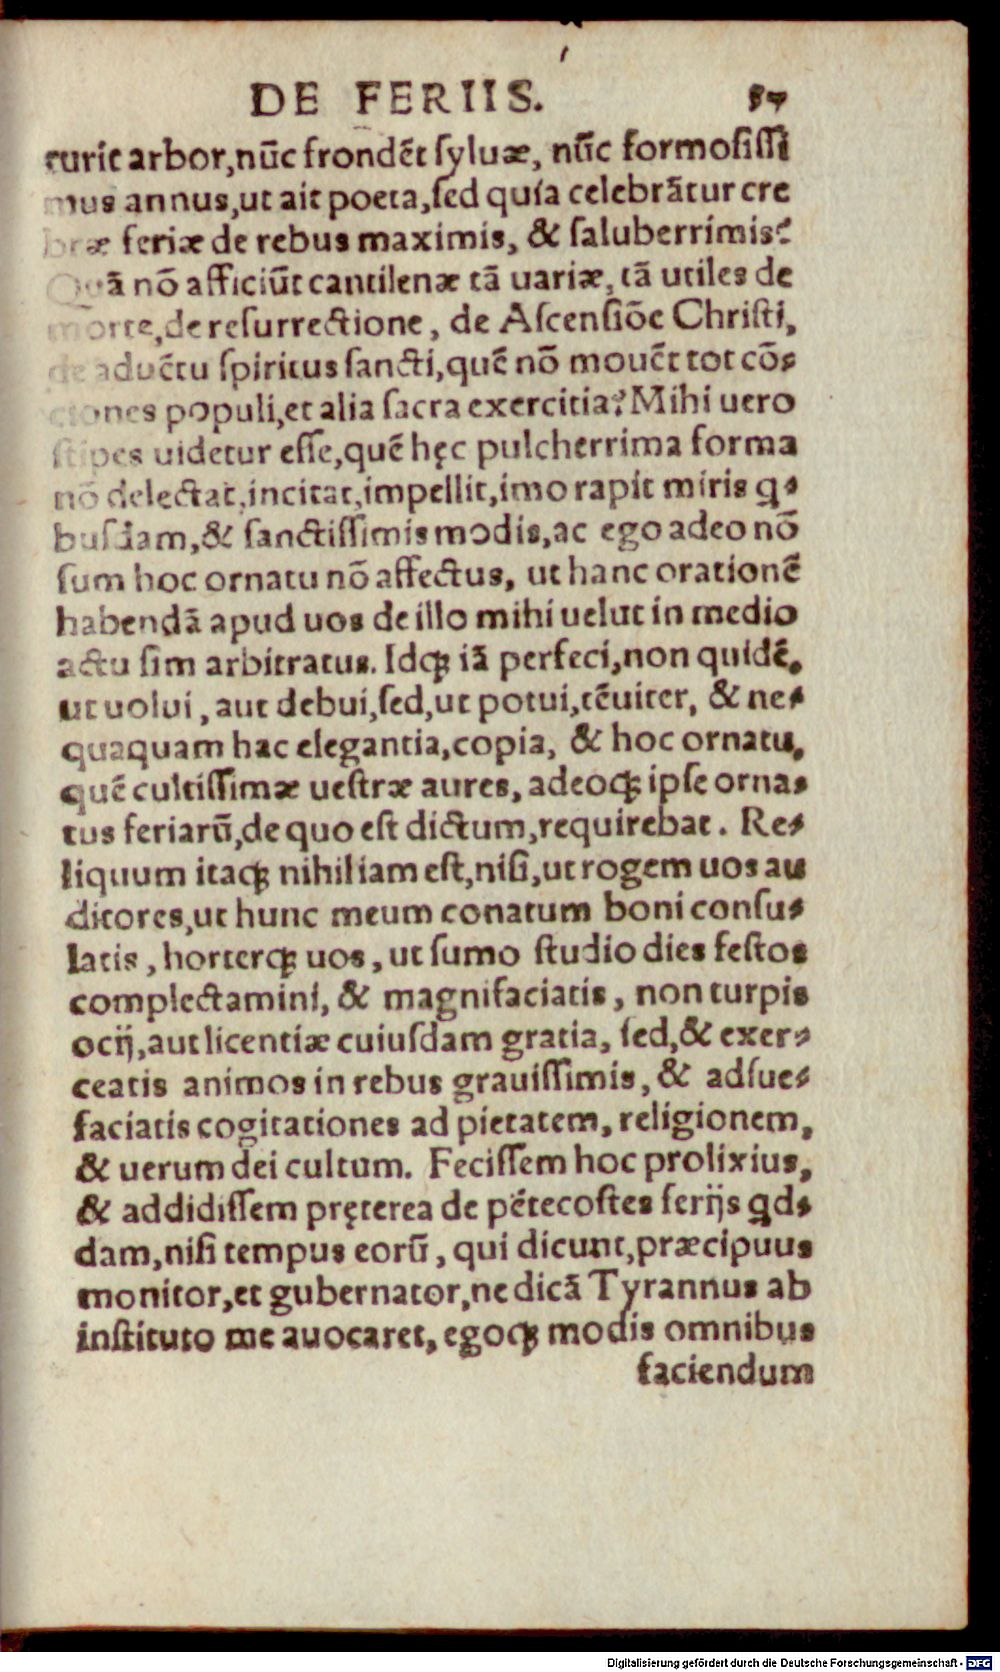 DE FERIIS. 87
turit arbor,nūc frondēt ſyluæ, nūc formoſiſſi
mus annus,ut ait poeta,ſed quia celebrātur cre
bræ feriæ de rebus maximis, & ſaluberrimis?
Quā nō afficiūt cantilenæ tā uariæ, tā utiles de
morte,de reſurrectione, de Aſcenſiōe Chriſti,
de aduētu ſpiritus ſancti,quē nō mouēt tot cō⸗
ctones populi,et alia ſacra exercitia? Mihi uero
ſtipes uidetur eſſe,quē hęc pulcherrima forma
nō delectat,incitat,impellit,imo rapit miris ꝗ⸗
buſdam,& ſanctiſſimis modis,ac ego adeo nō
ſum hoc ornatu nō affectus, ut hanc orationē
habendā apud uos de illo mihi uelut in medio
actu ſim arbitratus. Idqꝫ iā perfeci,non quidē,
ut uolui, aut debui,ſed,ut potui,tēuiter, & ne⸗
quaquam hac elegantia,copia, & hoc ornatu,
quē cultiſſimæ ueſtræ aures, adeoqꝫ ipſe orna⸗
tus feriarū,de quo eſt dictum,requirebat. Re⸗
liquum itaqꝫ nihil iam eſt,niſi,ut rogem uos au
ditores,ut hunc meum conatum boni conſu⸗
latis, horterqꝫ uos, ut ſumo ſtudio dies feſtos
complectamini, & magnifaciatis, non turpis
ocij,aut licentiæ cuiuſdam gratia, ſed,& exer⸗
ceatis animos in rebus grauiſſimis, & adſue⸗
faciatis cogitationes ad pietatem, religionem,
& uerum dei cultum. Feciſſem hoc prolixius,
& addidiſſem pręterea de pētecoſtes ferijs ꝗd⸗
dam,niſi tempus eorū, qui dicunt,præcipuus
monitor,et gubernator,ne dicā Tyrannus ab
inſtituto me auocaret, egoqꝫ modis omnibus
faciendum
Digitalisierung gefördert durch die Deutsche Forschungsgemeinschaft - DFG